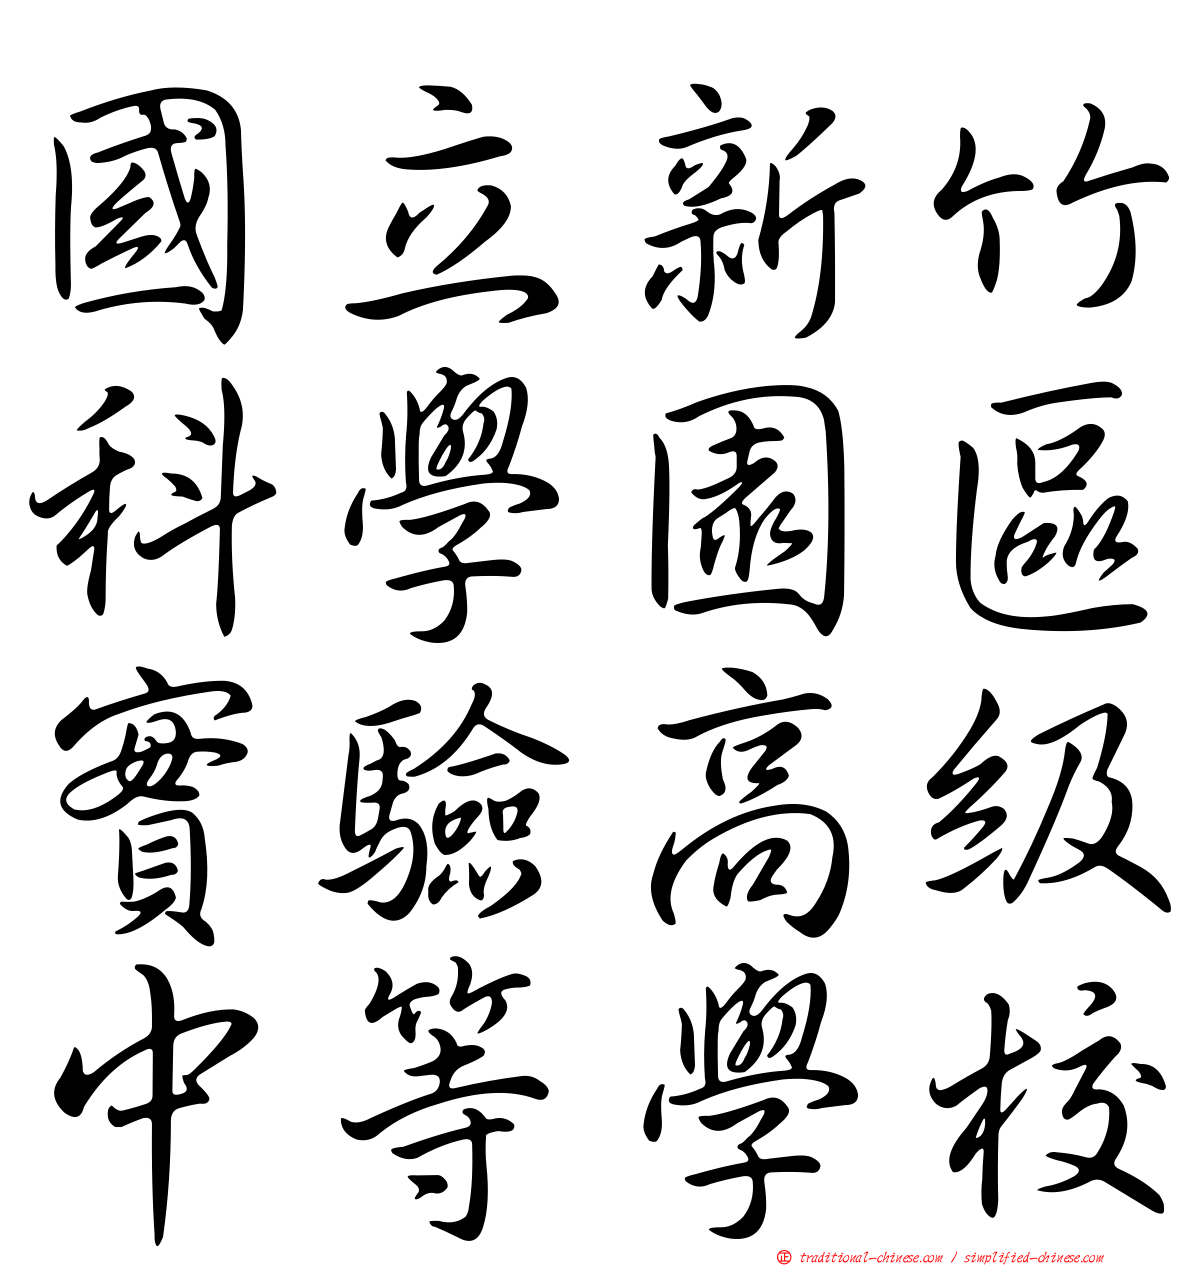 國立新竹
科學園區
實驗高級
中等學校
正 traditional-chinese.com / simplified-chinese.com